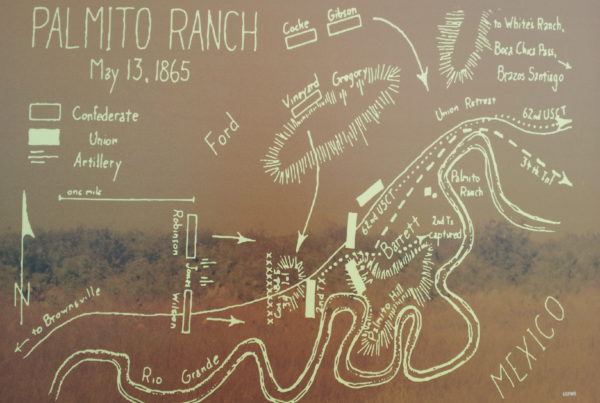 PALMITO RANCH
May 13, 1865
Confederate
Union
Artillery
one mile
Cocke
Gibson
Vineyard Gregory
Ford
to White's Ranch,
Boca Chica Pass,
Brazos Santiago
Union Retreat
62nd USCT
34th
Palmito
Ranch
62nd USCT
Barrett
2nd Tx
captured
Robinson
Jones
Wilson
2nd TX
Palmito Hill
N
to Brownsville
Rio Grande
MEXICO